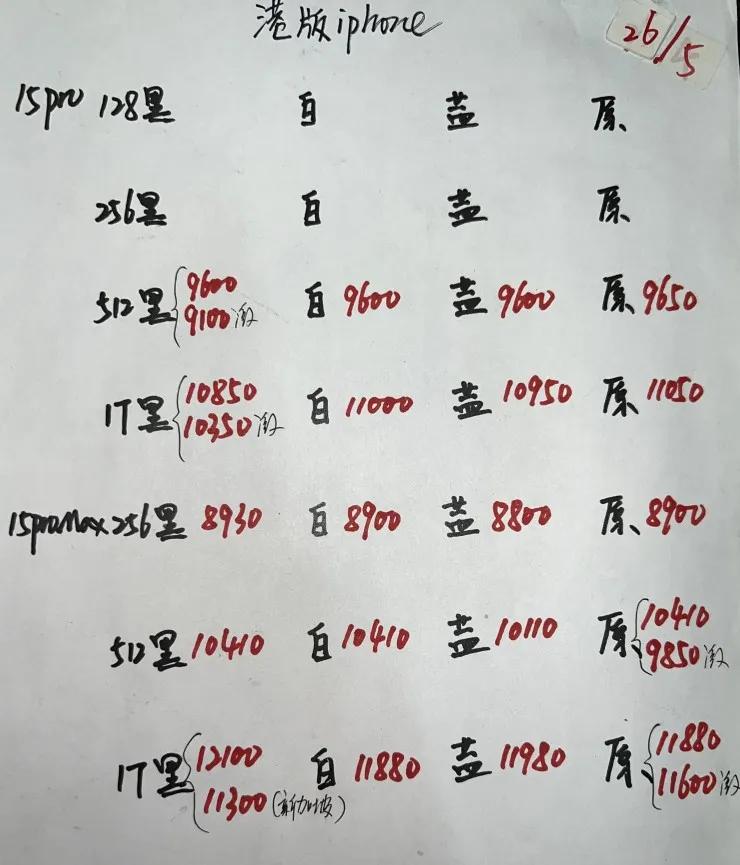 港版iphone
26/5
15pro 128黑 白 蓝 原
256黑 白 蓝 原
512黑 9600 白 9600 蓝 9600 原 9650
9100激
1T黑 10850 白 11000 蓝 10950 原 11050
10350激
15promax 256黑 8930 白 8900 蓝 8800 原 8900
512黑 10410 白 10410 蓝 10110 原 10410
9850激
1T黑 12100 白 11880 蓝 11980 原 11880
11300(新加坡) 11600激